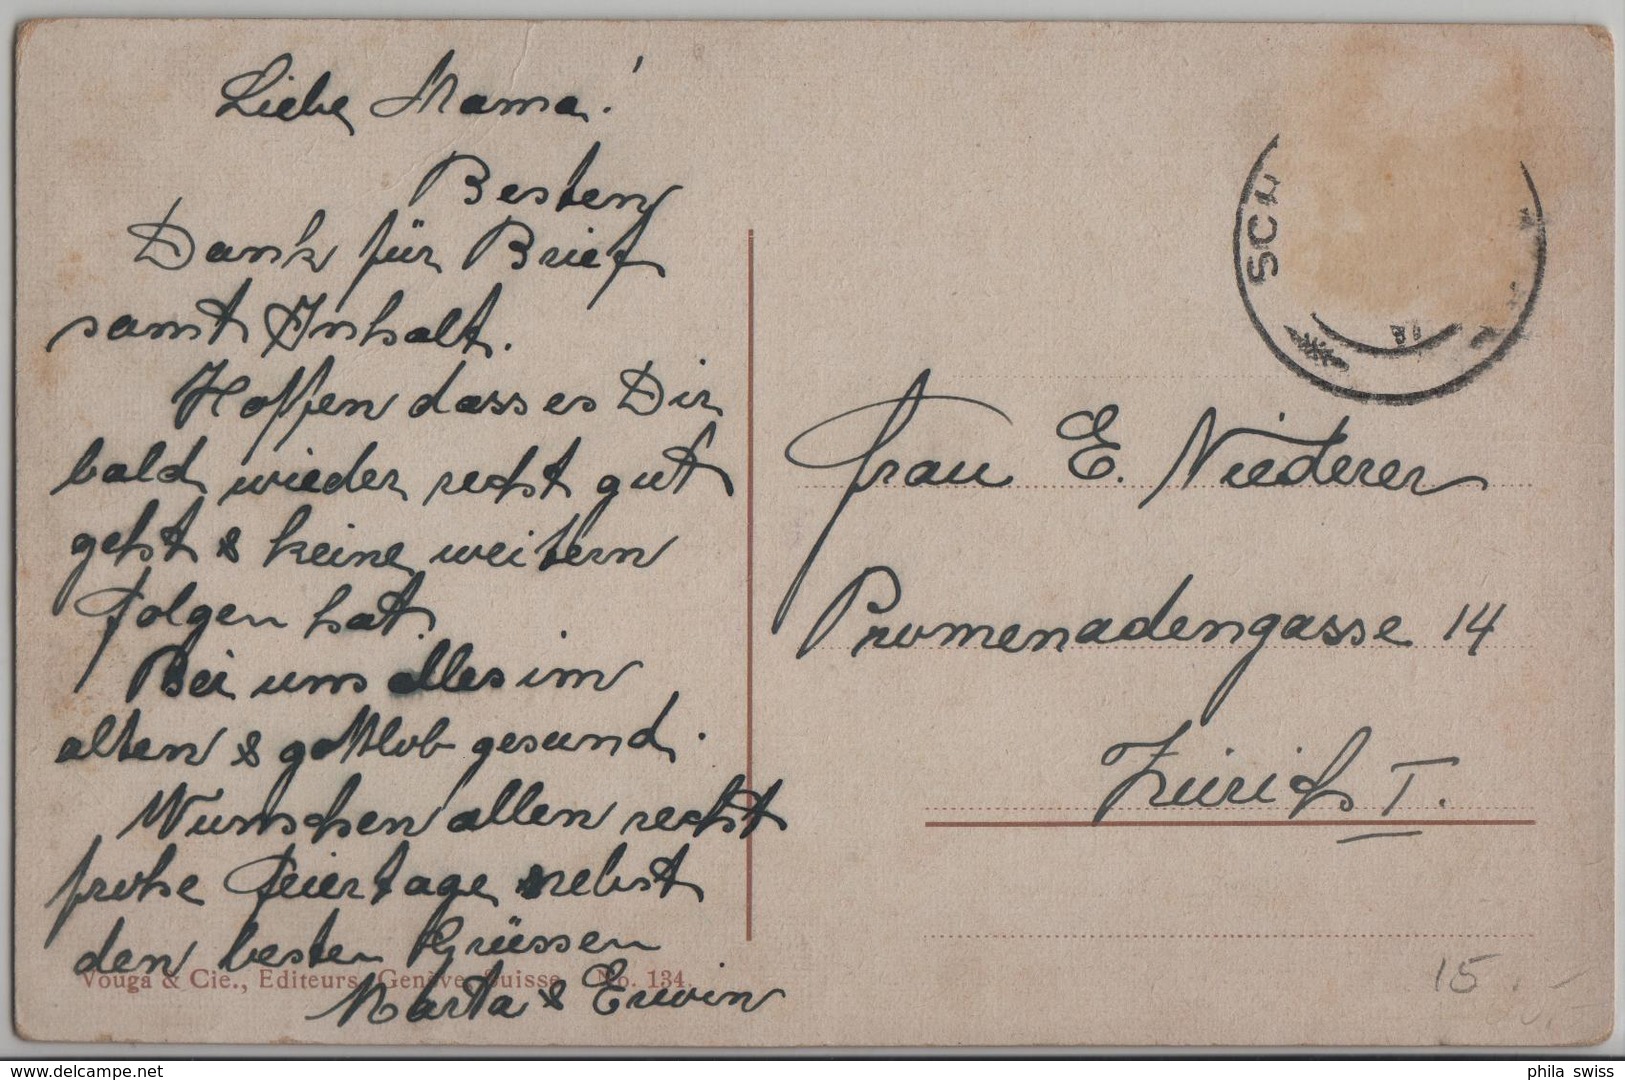 Liebe Mama!
Besten
Dank für Brief
samt Inhalt.
Hoffen dass es Dir
bald wieder recht gut
geht & keine weitern
Folgen hat.
Bei uns alles im
alten & gottlob gesund.
Wünschen allen recht
frohe Feiertage nebst
den besten Grüssen
Marta & Erwin
Vouga & Cie., Editeurs, Genève, Suisse. No. 134.
SCH
Frau E. Niederer
Promenadengasse 14
Zürich I.
15.-
delcampe.net
phila_swiss